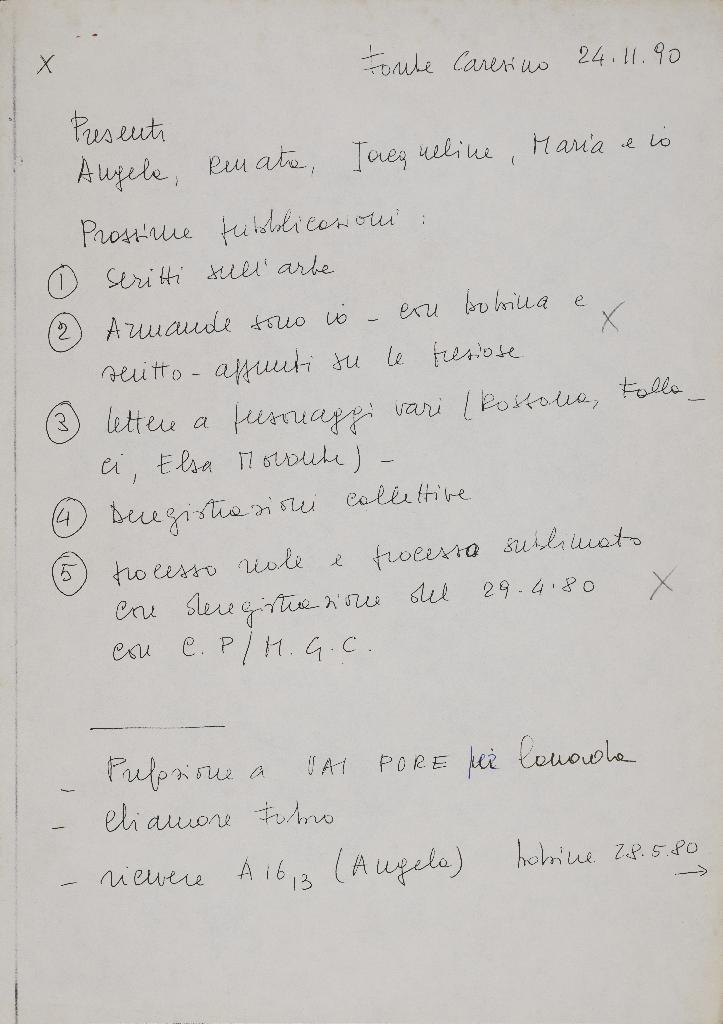 X
Fonte Cerreino 24.11.90
Presenti
Angela, Renata, Jacqueline, Maria e io
Prossime pubblicazioni :
1 Scritti sull'arte
2 Armande sono io - con bobina e X
scritto - appunti su le preziose
3 lettere a personaggi vari (Rossana, Falla_
ci, Elsa Morante) -
4 Deregistrazioni collettive
5 processo reale e processo sublimato
con deregistrazione del 29.4.80 X
con C.P/M.G.C.
- Prefazione a VAI PURE per
- Chiamare
- ricevere A16 13 (Angela) bobine 28.5.80
→